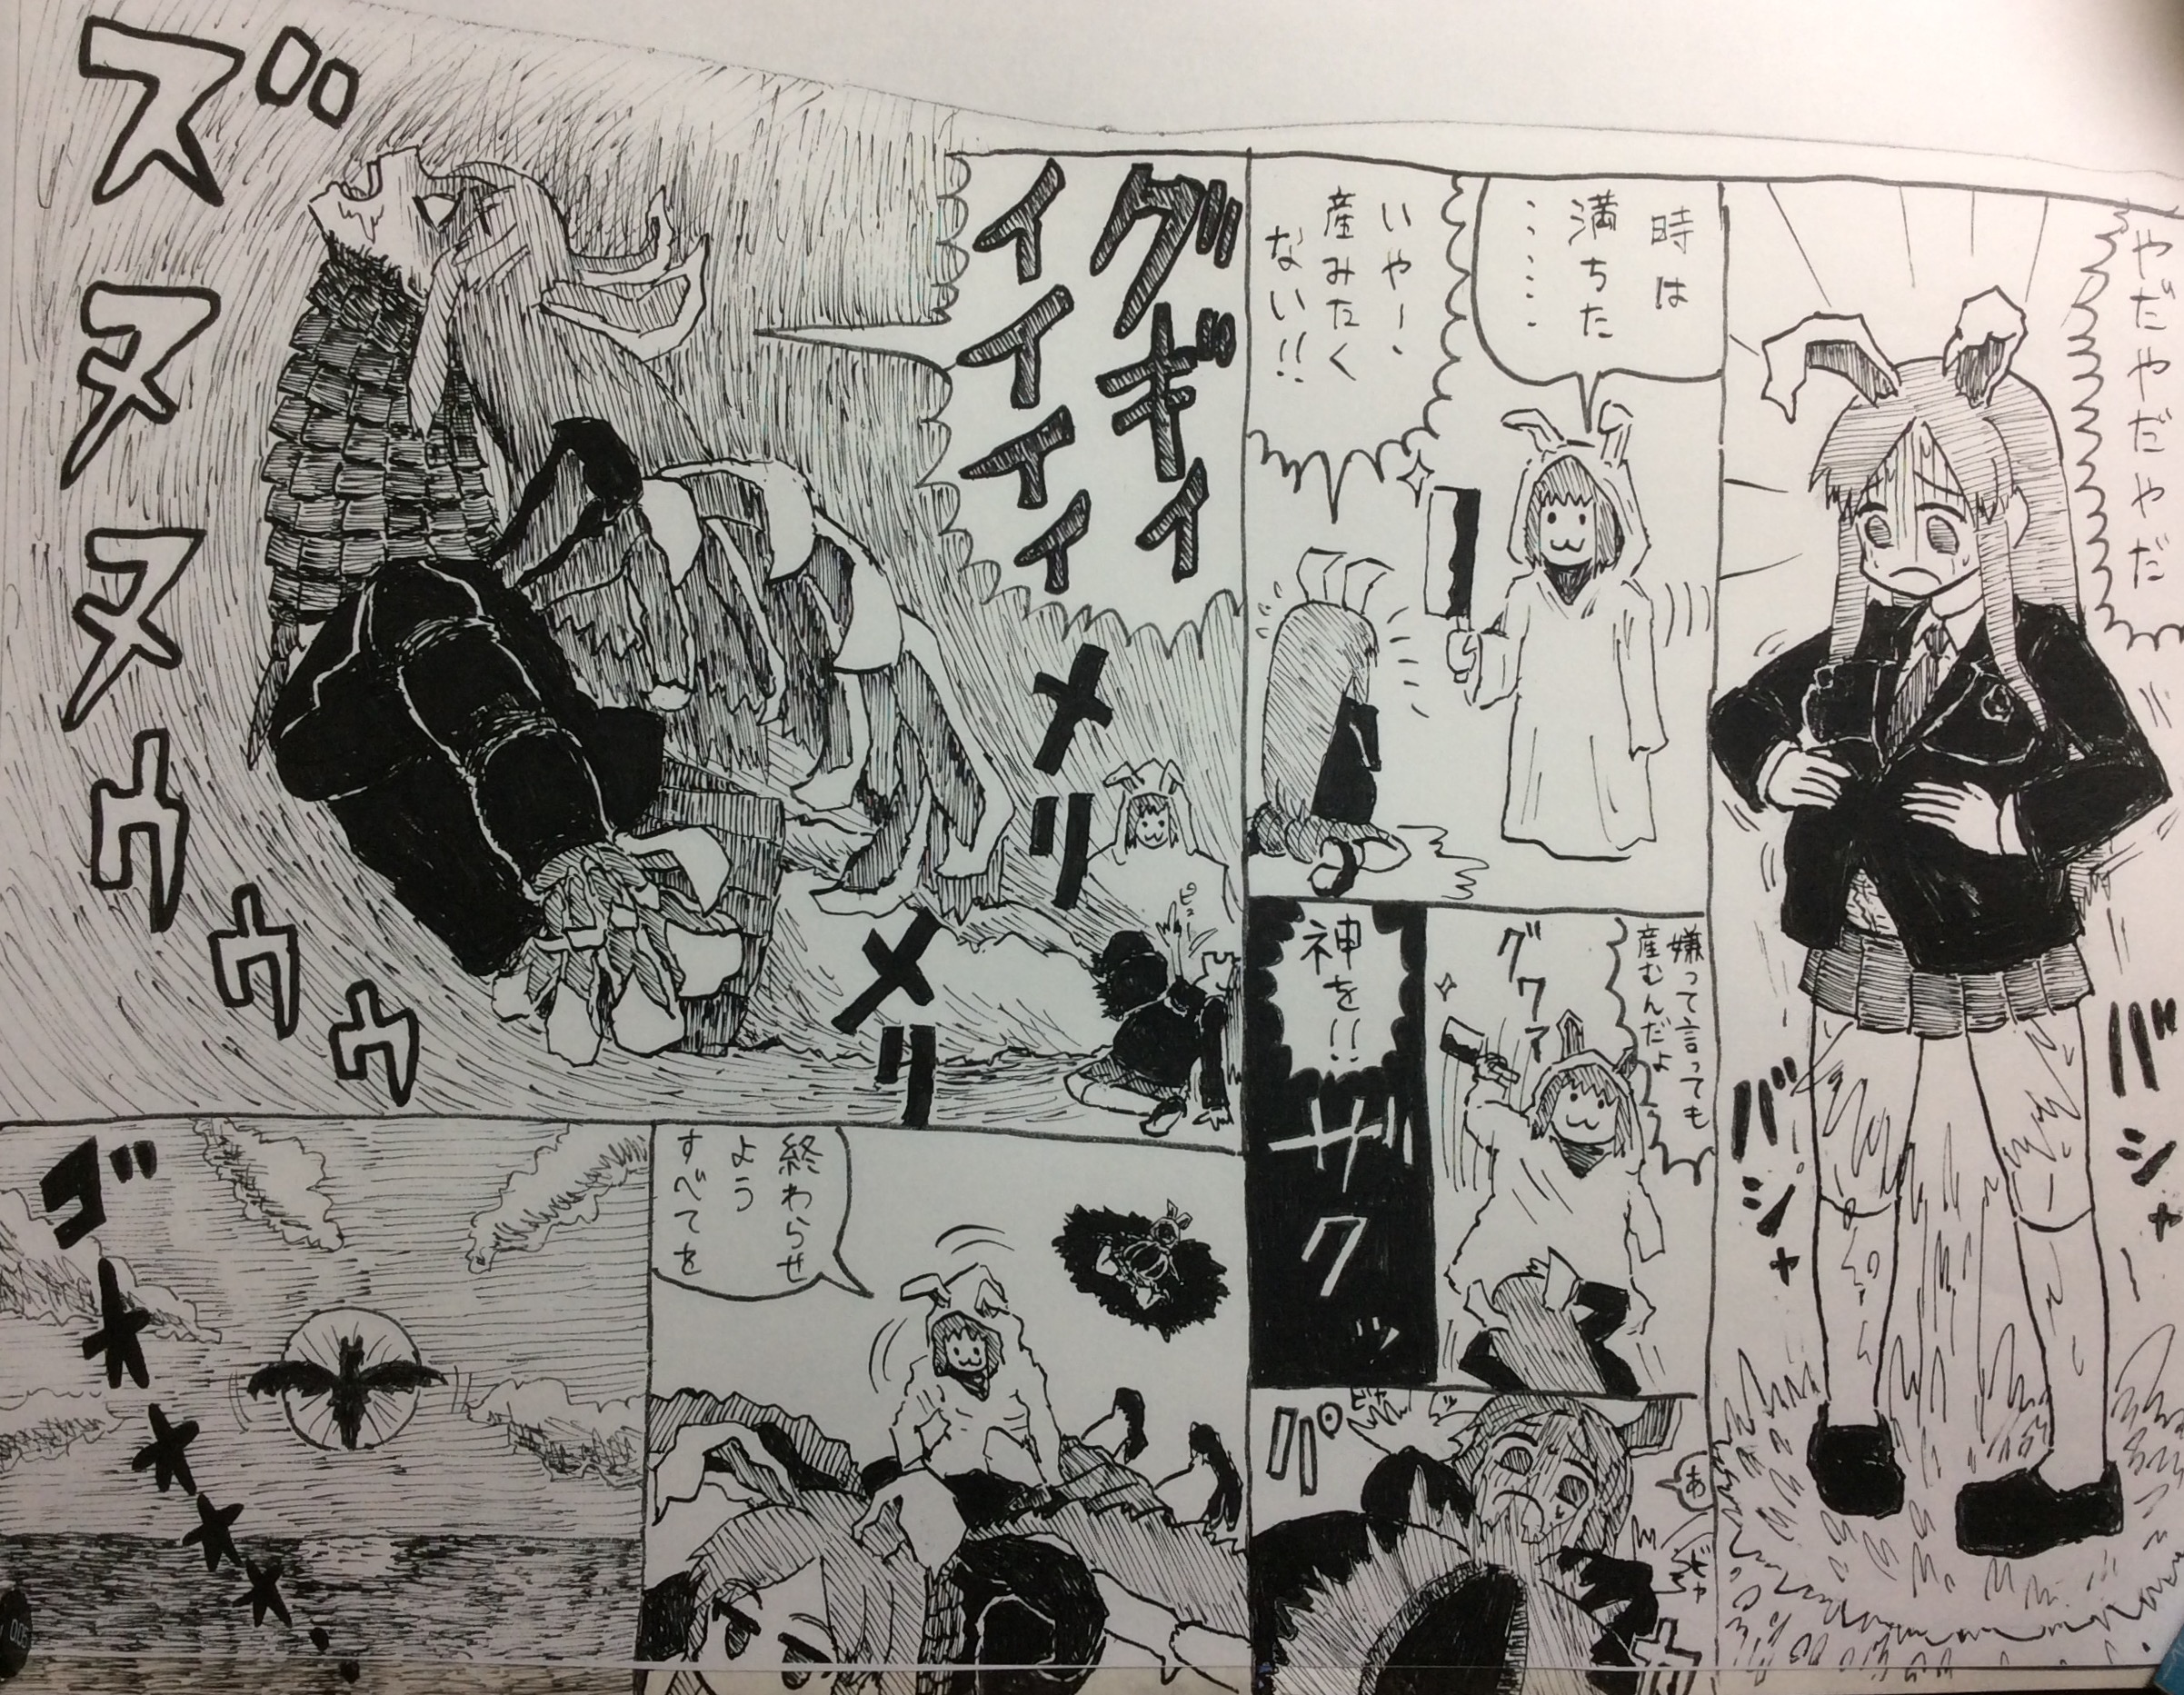 やだやだやだ
バシャ
バシャ
時は
満ちた
‥‥‥
いやー、
産みたく
ない!!
嫌って言っても
産むんだよ
グワァ
神を!!
ザクッ
あ
パ
グギィ
イイイィ
メリ
メリ
ズヌヌゥゥゥ
終わらせ
よう
すべてを
ゴオオオオ・・